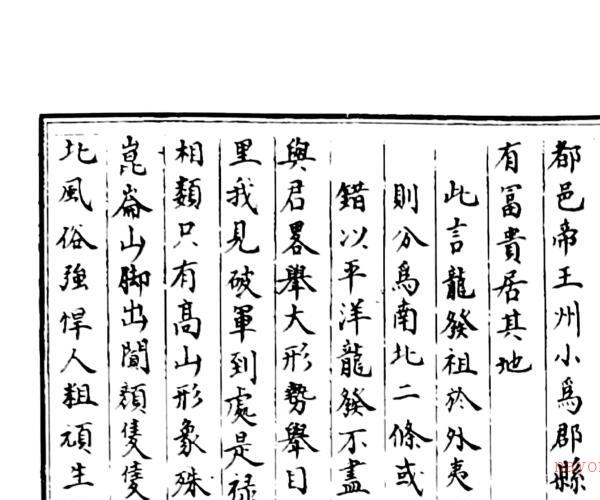 都邑帝王州小爲郡縣
有富貴居其地
此言龍發祖於外夷
則分爲南北二條或
錯以平洋龍發不盡
與君畧舉大形勢舉目
里我見破軍到處是禄
相類只有高山形象殊
崑崙山脚出闐顔隻隻
北風俗強悍人粗頑生